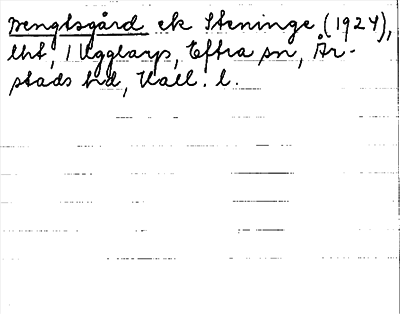 Bengtsgård ek Steninge (1924),
lht, 1 Ugglarp, Eftra sn, År-
stads hd, Hall. l.